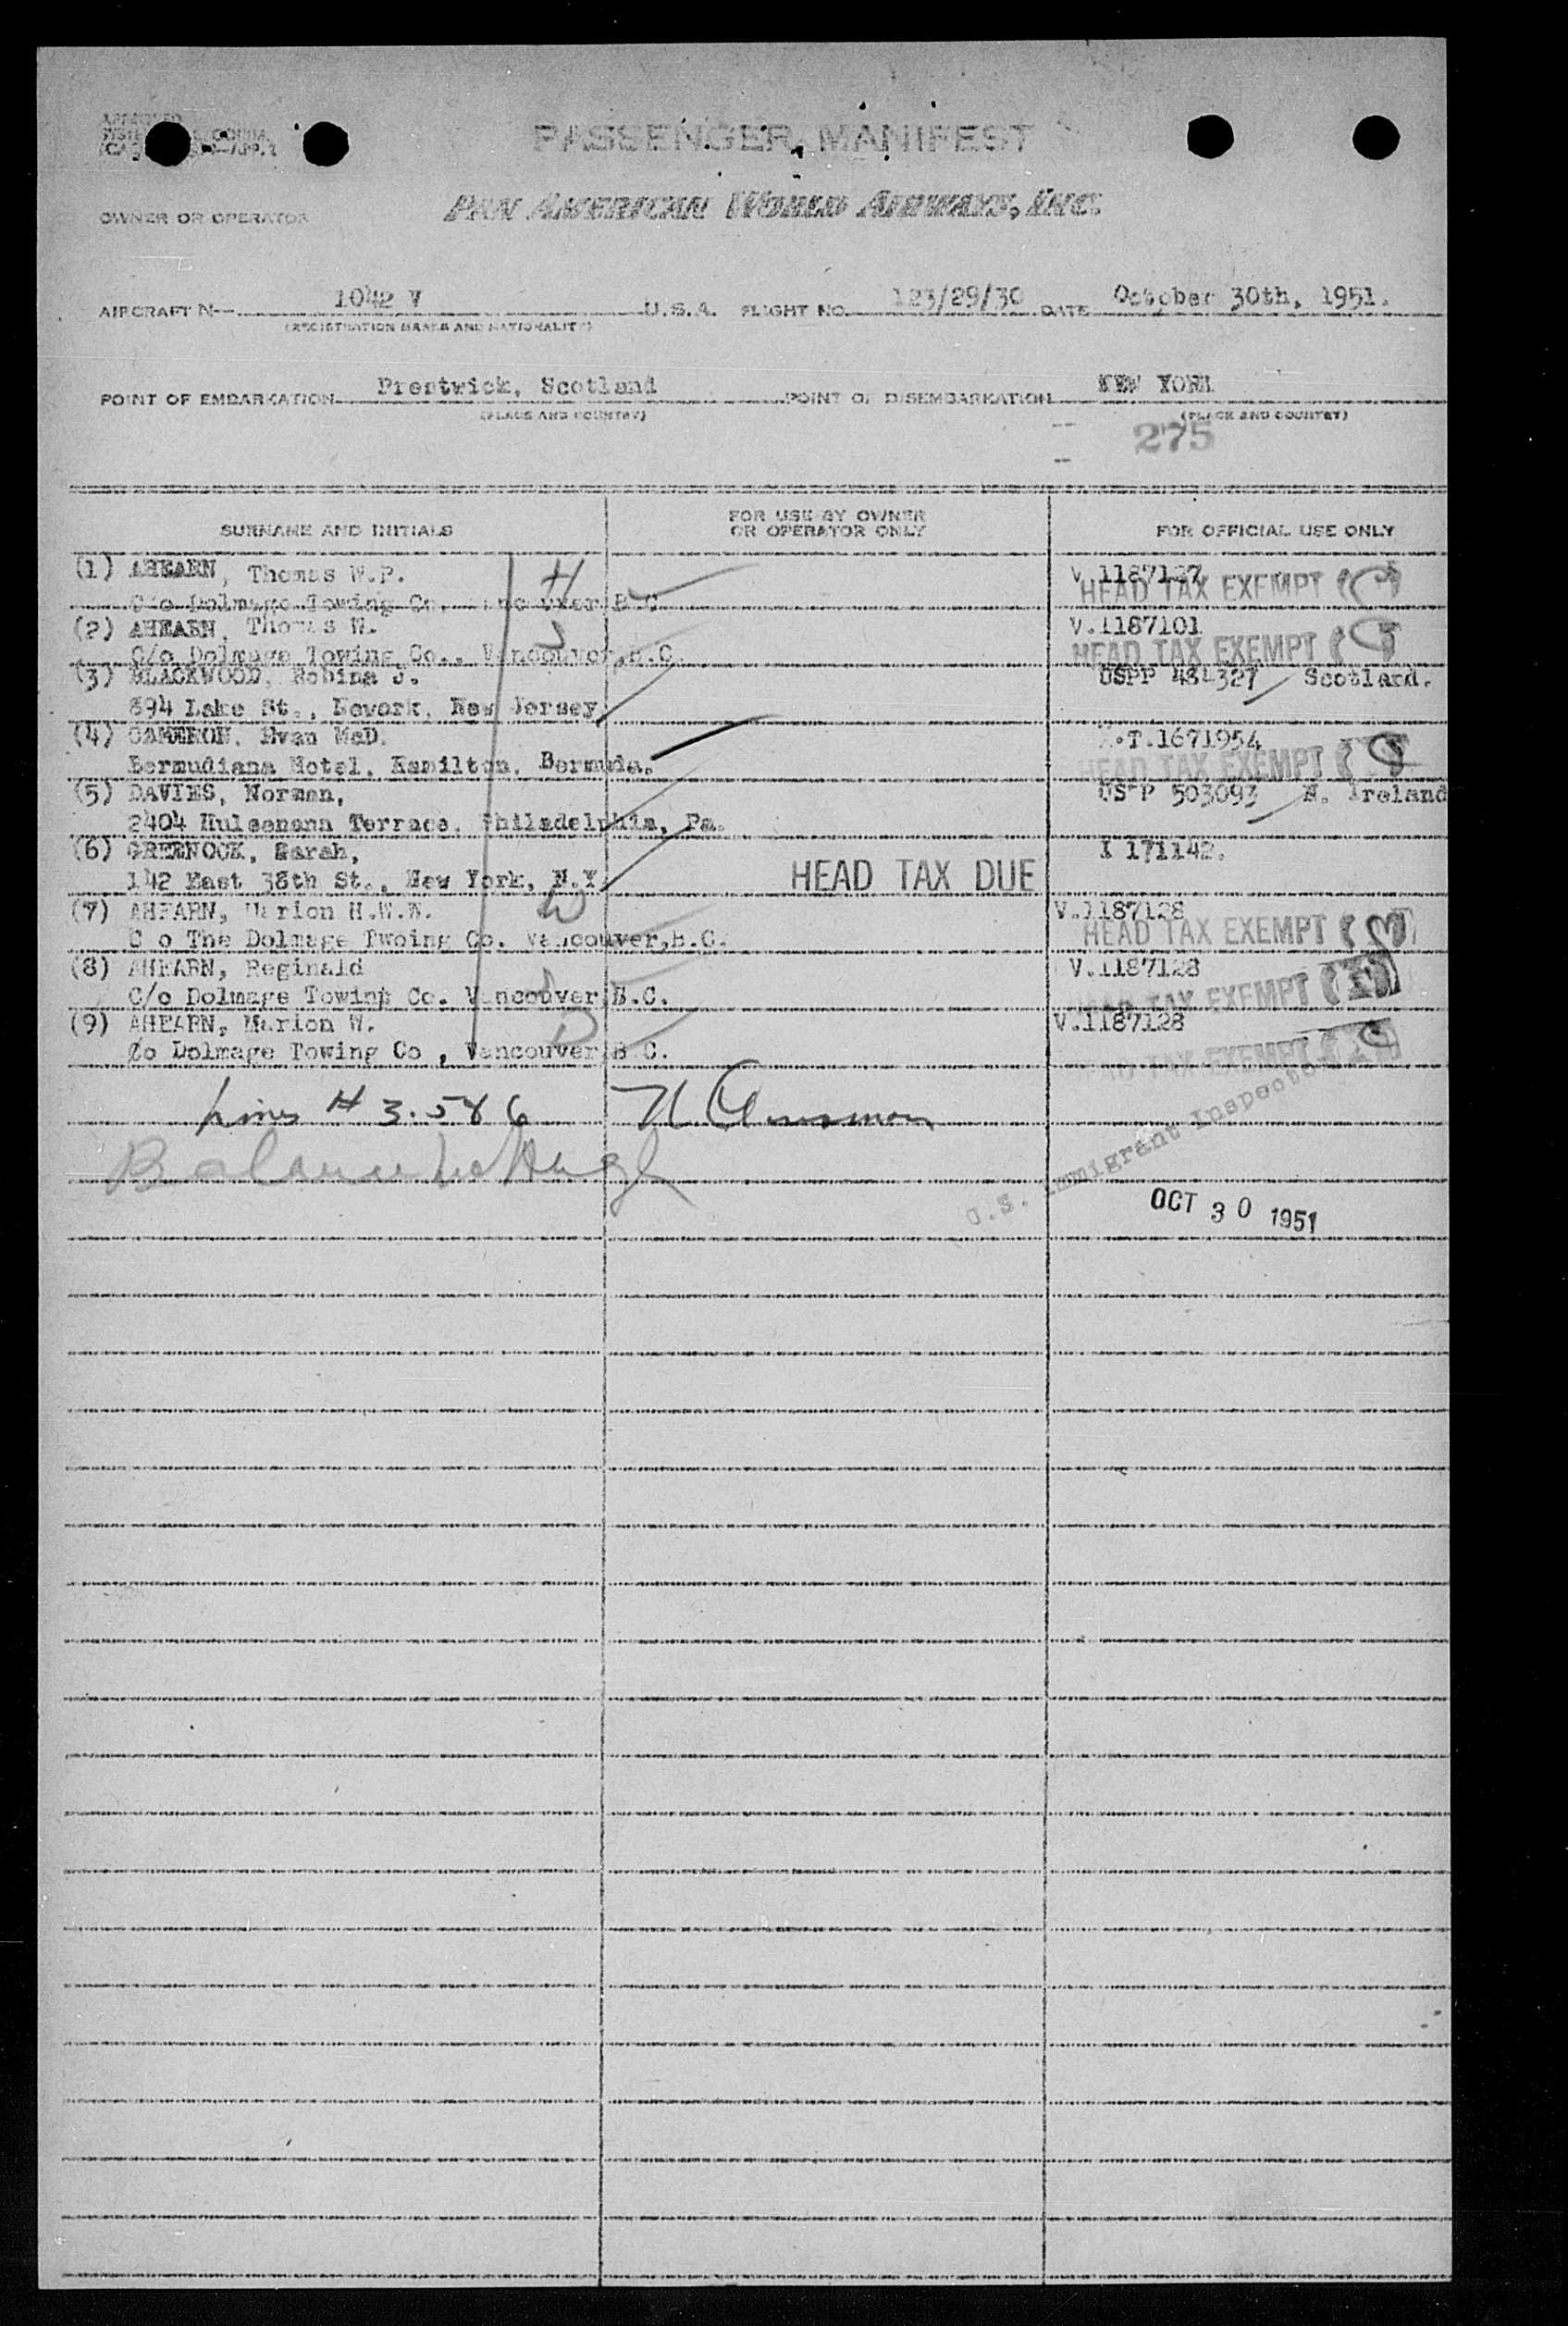 APPROVED
PASSENGER MANIFEST
OWNER OR OPERATOR PAN AMERICAN WORLD AIRWAYS, INC.
AIRCRAFT N— 1042 V U.S.A. FLIGHT NO. 123/29/30 DATE October 30th, 1951.
(REGISTRATION MARKS AND NATIONALITY)
POINT OF EMBARKATION Prestwick, Scotland POINT OF DISEMBARKATION NEW YORK
(PLACE AND COUNTRY) (PLACE AND COUNTRY)
275
SURNAME AND INITIALS FOR USE BY OWNER OR OPERATOR ONLY FOR OFFICIAL USE ONLY
(1) AHEARN, Thomas W.P. H V.1187127
C/o Dolmage Towing Co. Vancouver B.C. HEAD TAX EXEMPT
(2) AHEARN, Thomas W. V.1187101
C/o Dolmage Towing Co., Vancouver, B.C. HEAD TAX EXEMPT
(3) BLACKWOOD, Robina J. USPP 484327 Scotland.
694 Lake St., Newark, New Jersey
(4) CAMERON, Ewan McD. T.1671954
Bermudiana Hotel, Hamilton, Bermuda. HEAD TAX EXEMPT
(5) DAVIES, Norman, USPP 503093 N. Ireland
2404 Hulsemann Terrace, Philadelphia, Pa.
(6) GREENOCK, Sarah, I 171142.
142 East 38th St., New York, N.Y. HEAD TAX DUE
(7) AHEARN, Marion H.W.W. W V.1187128
C o The Dolmage Twoing Co. Vancouver, B.C. HEAD TAX EXEMPT
(8) AHEARN, Reginald V.1187128
C/o Dolmage Towing Co. Vancouver B.C. HEAD TAX EXEMPT
(9) AHEARN, Marion W. D V.1187128
C/o Dolmage Towing Co , Vancouver B.C. HEAD TAX EXEMPT
Lines # 3.5 & 6
Balance
U.S. Immigrant Inspector
OCT 30 1951